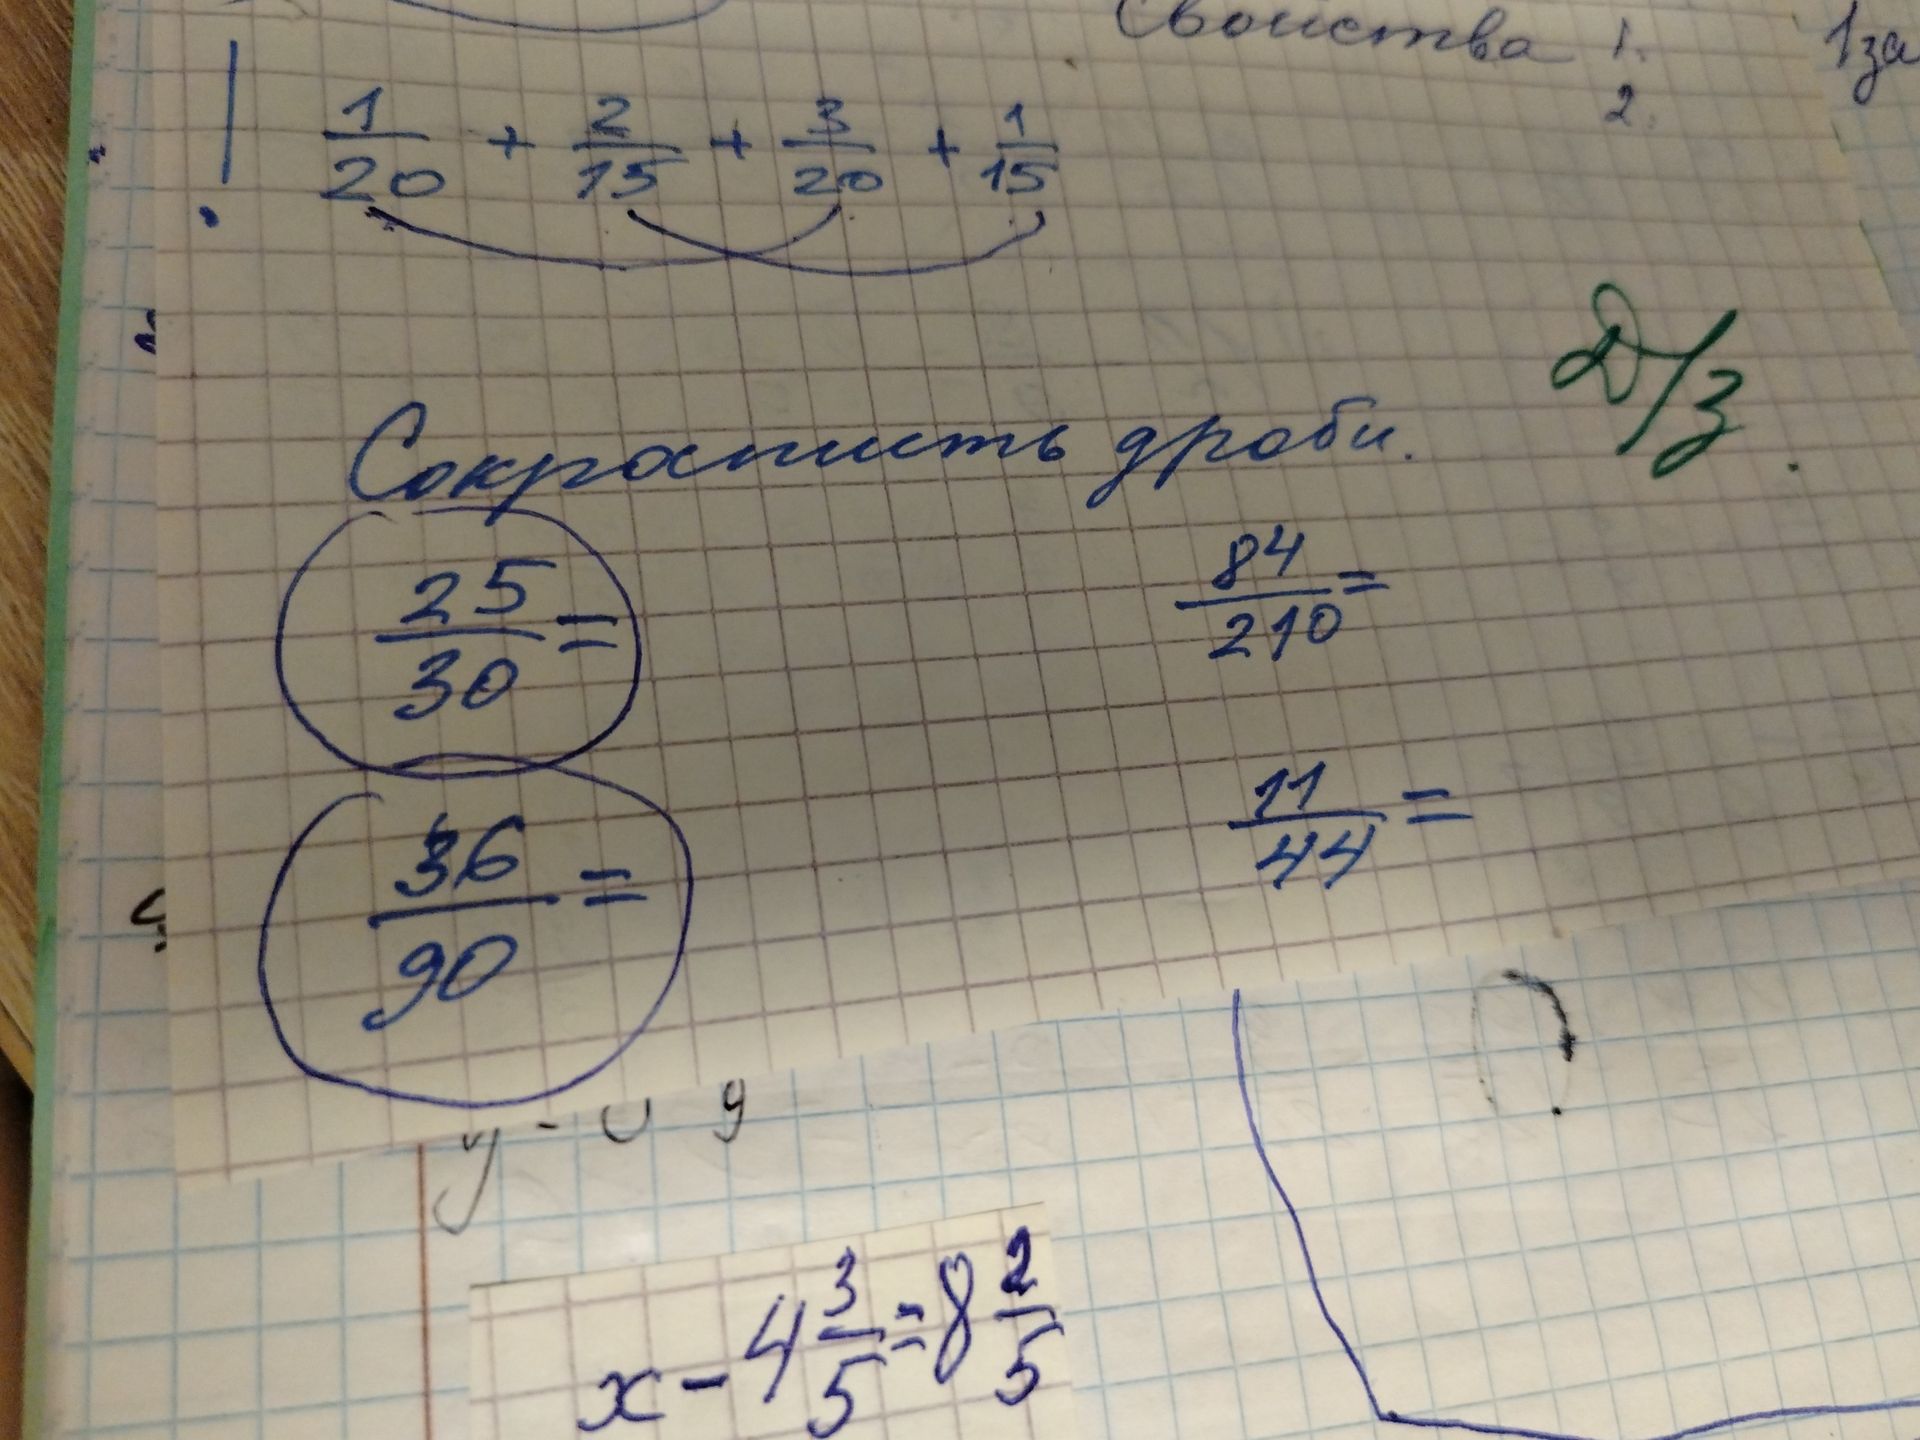 Свойства 1.
2.
1за
! 1/20 + 2/15 + 3/20 + 1/15
Д/з.
Сократить дроби.
25/30 = 84/210 =
36/90 = 11/44 =
x - 4 3/5 = 8 2/5